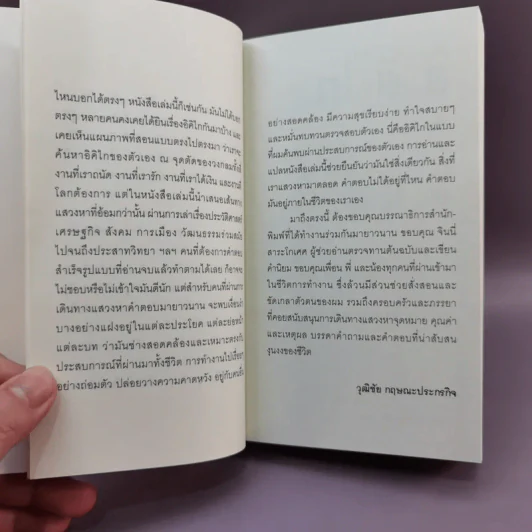 ไหนบอกได้ตรงๆ หนังสือเล่มนี้ก็เช่นกัน มันไม่ได้บอก
ตรงๆ หลายคนคงเคยได้ยินเรื่องอิคิไกกันมาบ้าง และ
เคยเห็นแผนภาพที่สอนแบบตรงไปตรงมา ว่าเราจะ
ค้นหาอิคิไกของตัวเอง ณ จุดตัดของวงกลมทั้งสี่
งานที่เราถนัด งานที่เรารัก งานที่เราได้เงิน และงานที่
โลกต้องการ แต่ในหนังสือเล่มนี้นำเสนอเส้นทาง
แสวงหาที่อ้อมกว่านั้น ผ่านการเล่าเรื่องประวัติศาสตร์
เศรษฐกิจ สังคม การเมือง วัฒนธรรมร่วมสมัย
ไปจนถึงประสาทวิทยา ฯลฯ คนที่ต้องการคำตอบ
สำเร็จรูปแบบที่อ่านจบแล้วทำตามได้เลย ก็อาจจะ
ไม่ชอบหรือไม่เข้าใจมันดีนัก แต่สำหรับคนที่ผ่านการ
เดินทางแสวงหาคำตอบมายาวนาน จะพบเงื่อนงำ
บางอย่างแฝงอยู่ในแต่ละประโยค แต่ละย่อหน้า
แต่ละบท ว่ามันช่างสอดคล้องและเหมาะตรงกับ
ประสบการณ์ที่ผ่านมาทั้งชีวิต การทำงานไปเรื่อยๆ
อย่างถ่อมตัว ปล่อยวางความคาดหวัง อยู่กับคนอื่น
อย่างสอดคล้อง มีความสุขเรียบง่าย ทำใจสบายๆ
และหมั่นทบทวนตรวจสอบตัวเอง นี่คืออิคิไกในแบบ
ที่ผมค้นพบผ่านประสบการณ์ของตัวเอง การอ่านและ
แปลหนังสือเล่มนี้ช่วยยืนยันว่ามันใช่สิ่งเดียวกัน สิ่งที่
เราแสวงหามาตลอด คำตอบไม่ได้อยู่ที่ไหน คำตอบ
มันอยู่ภายในชีวิตของเราเอง
มาถึงตรงนี้ ต้องขอบคุณบรรณาธิการสำนัก-
พิมพ์ที่ได้ทำงานร่วมกันมายาวนาน ขอบคุณ จินนี่
สาระโกเศศ ผู้ช่วยอ่านตรวจทานต้นฉบับและเขียน
คำนิยม ขอบคุณเพื่อน พี่ และน้องทุกคนที่ผ่านเข้ามา
ในชีวิตการทำงาน ซึ่งล้วนมีส่วนช่วยสั่งสอนและ
ขัดเกลาตัวตนของผม รวมถึงครอบครัวและภรรยา
ที่คอยสนับสนุนการเดินทางแสวงหาจุดหมาย คุณค่า
และเหตุผล บรรดาคำถามและคำตอบที่น่าสับสน
งุนงงของชีวิต
วุฒิชัย กฤษณะประกรกิจ